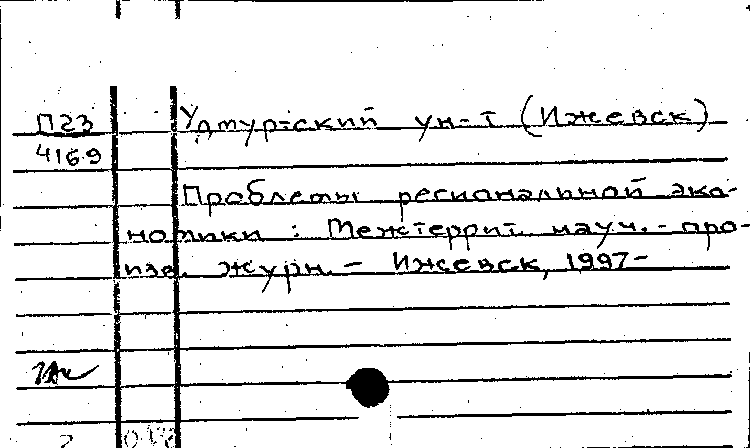 П23
4169
Удмуртский ун-т (Ижевск)
Проблемы региональной эко-
номики : Межтеррит. науч.- про-
изв. журн. - Ижевск, 1997-